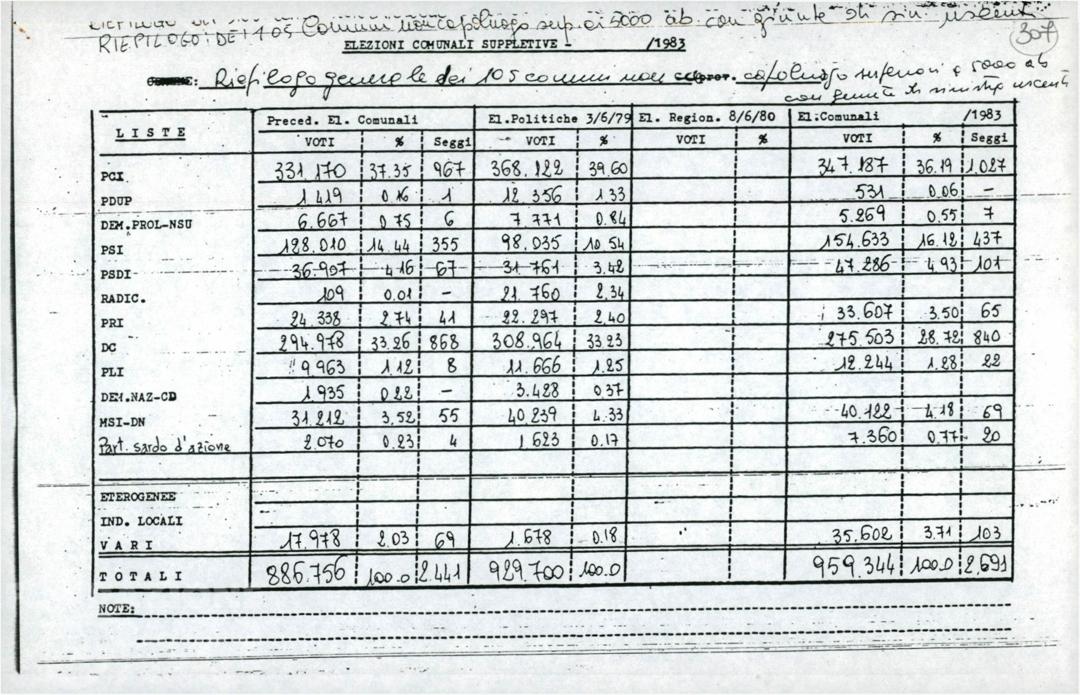 RIEPILOGO DEI 105 Comuni non capoluogo sup. ai 5000 ab. con giunte di sin. uscenti
307
ELEZIONI COMUNALI SUPPLETIVE - /1983
Riepilogo generale dei 105 comuni non capoluogo superiori a 5000 ab
con giunte di sinistra uscenti
LISTE Preced. El. Comunali El.Politiche 3/6/79 El. Region. 8/6/80 El.Comunali /1983
VOTI % Seggi VOTI % VOTI % VOTI % Seggi
PCI 331.170 37.35 967 368.122 39.60 347.187 36.19 1.027
PDUP 1.419 0.16 1 12.356 1.33 531 0.06 -
DEM.PROL-NSU 6.667 0.75 6 7.771 0.84 5.269 0.55 7
PSI 128.010 14.44 355 98.035 10.54 154.633 16.12 437
PSDI 36.907 4.16 67 31.761 3.42 47.286 4.93 101
RADIC. 109 0.01 - 21.760 2.34
PRI 24.338 2.74 41 22.297 2.40 33.607 3.50 65
DC 294.978 33.26 868 308.964 33.23 275.503 28.72 840
PLI 9.963 1.12 8 11.666 1.25 12.244 1.28 22
DEM.NAZ-CD 1.935 0.22 - 3.428 0.37
MSI-DN 31.212 3.52 55 40.239 4.33 40.122 4.18 69
Part. sardo d'azione 2.070 0.23 4 1.623 0.17 7.360 0.77 20
ETEROGENEE
IND. LOCALI
VARI 17.978 2.03 69 1.678 0.18 35.602 3.71 103
TOTALI 886.756 100.0 2.441 929.700 100.0 959.344 100.0 2.691
NOTE: